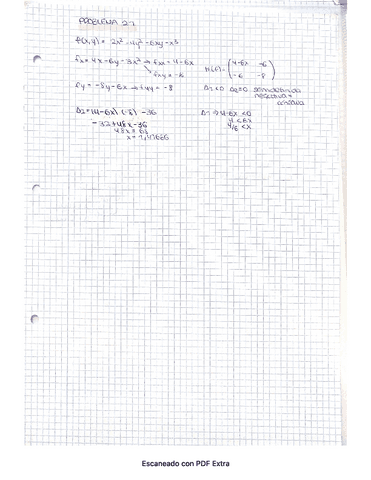 PROBLEMA 2.1
f(x,y) = 2x² - 4y² - 6xy - x³
fx = 4x - 6y - 3x² → fxx = 4 - 6x
fxy = -6
H(f) = (4-6x -6
-6 -8)
fy = -8y - 6x → fyy = -8
Δ1 < 0 Δ2 = 0 semidefinida
negativa →
cóncava
Δ2 = (4-6x)(-8) - 36
-32 + 48x - 36
48x = 68
Δ1 → 4 - 6x < 0
4 < 6x
4/6 < x
Escaneado con PDF Extra